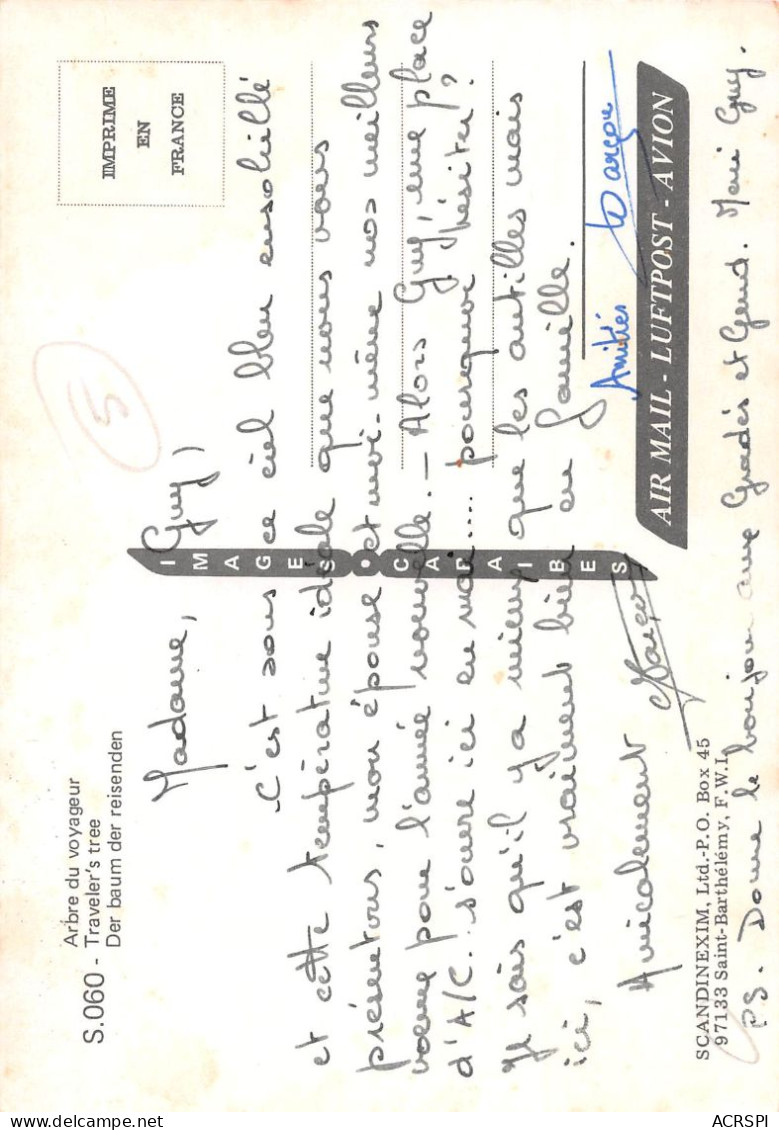 Arbre du voyageur
S.060 - Traveler's tree
Der baum der reisenden
IMPRIME
EN
FRANCE
5
Madame, Guy,
C'est sous ce ciel bleu ensoleillé
et cette température idéale que nous vous
présentons, mon épouse et moi-même nos meilleurs
voeux pour l'année nouvelle. - Alors Guy, une place
d'A/C. s'ouvre ici en mai.... pourquoi hésiter?
Je sais qu'il y a mieux que les antilles mais
ici, c'est vraiment bien en famille.
Amicalement
Amitiés
IMAGES • CARAIBES
AIR MAIL - LUFTPOST - AVION
SCANDINEXIM, Ltd.-P.O. Box 45
97133 Saint-Barthélémy, F.W.I.
PS. Donne le bonjour aux Gradés et Gend. Merci Guy.
ACRSPI